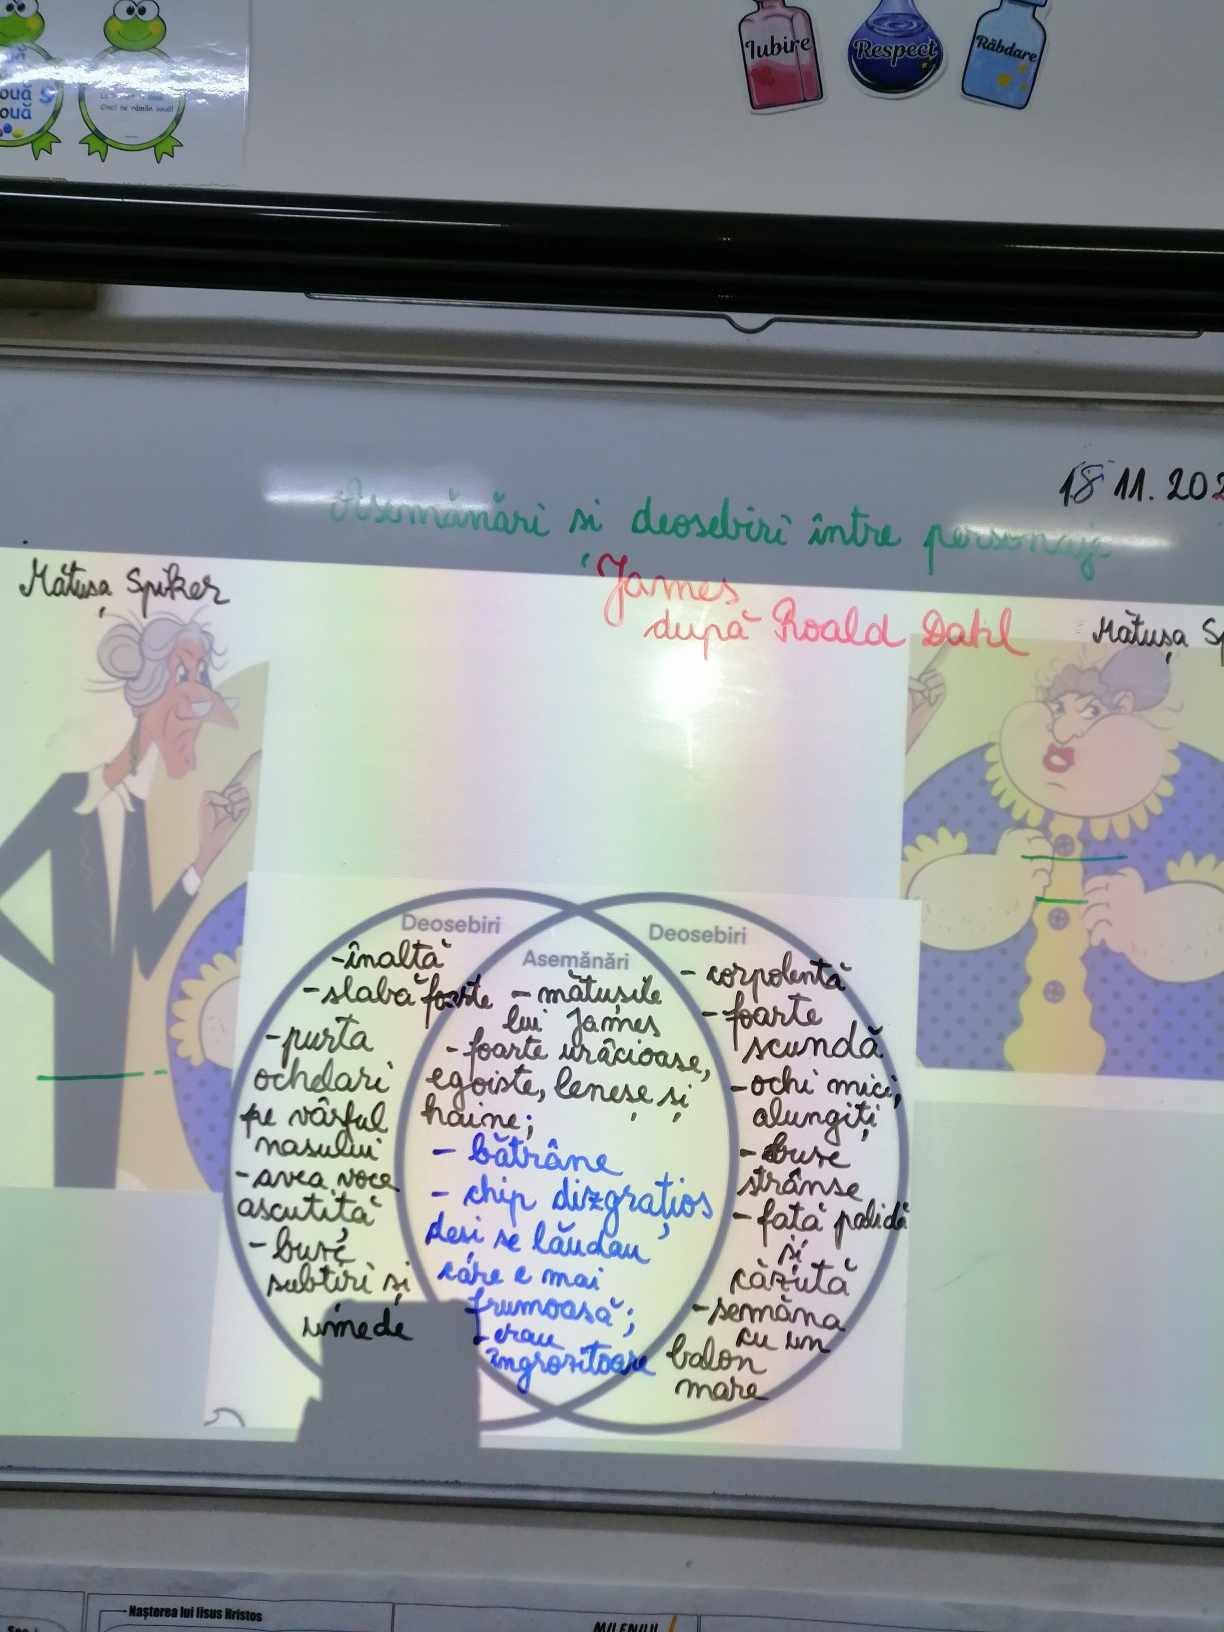 Iubire
Respect
Răbdare
ouă
ouă
18 11.202
Asemănări si deosebiri între personaje
James
după Roald Dahl
Mătușa Spiker
Mătușa Sp
Deosebiri
-înaltă
-slabă foarte
-purta
ochelari
pe vârful
nasului
-avea voce
ascuțită
-buze
subțiri și
umede
Asemănări
-mătușile
lui James
-foarte urâcioase,
egoiste, leneșe și
haine;
- bătrâne
- chip dizgrațios
deși se lăudau
care e mai
frumoasă;
-erau
îngrozitoare
Deosebiri
- corpolentă
-foarte
scundă
-ochi mici,
alungiți
-buze
strânse
-fața palidă
și
căzută
-semăna
cu un
balon
mare
Nașterea lui Iisus Hristos
MILENIUL